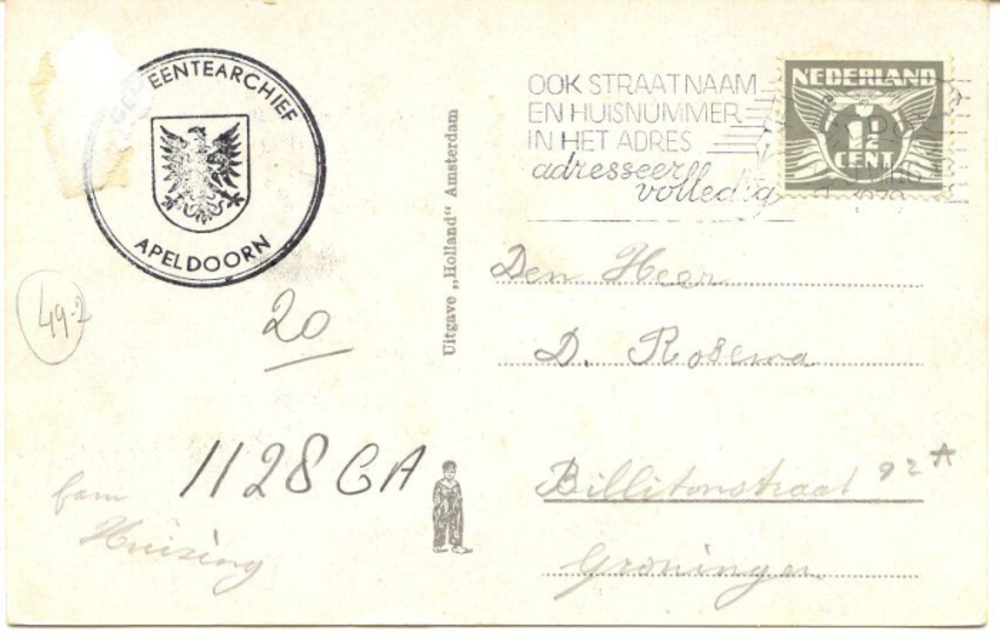 GEMEENTEARCHIEF
APELDOORN
49-2
20
1128 GA
fam
Huising
Uitgave „Holland" Amsterdam
OOK STRAATNAAM
EN HUISNUMMER
IN HET ADRES
adresseer
volledig
NEDERLAND
1½
CENT
Den Heer
D. Rosema
Billitonstraat 92 A
Groningen